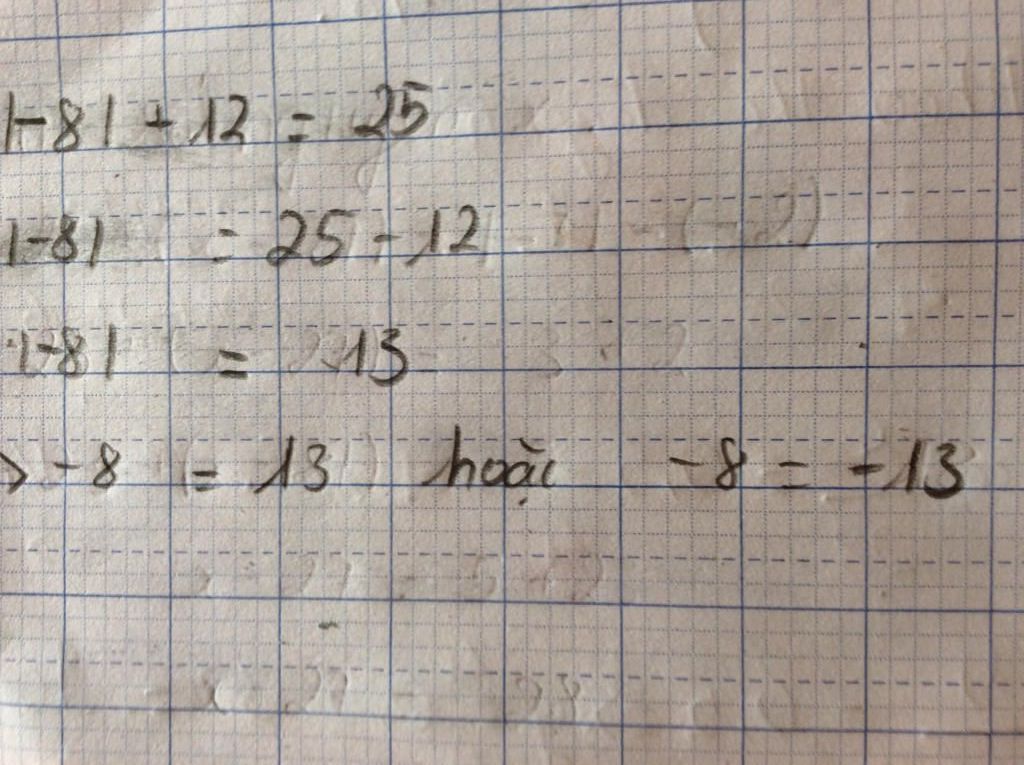 |-8| + 12 = 25
|-8| = 25 - 12
|-8| = 13
> -8 = 13 hoặc -8 = -13